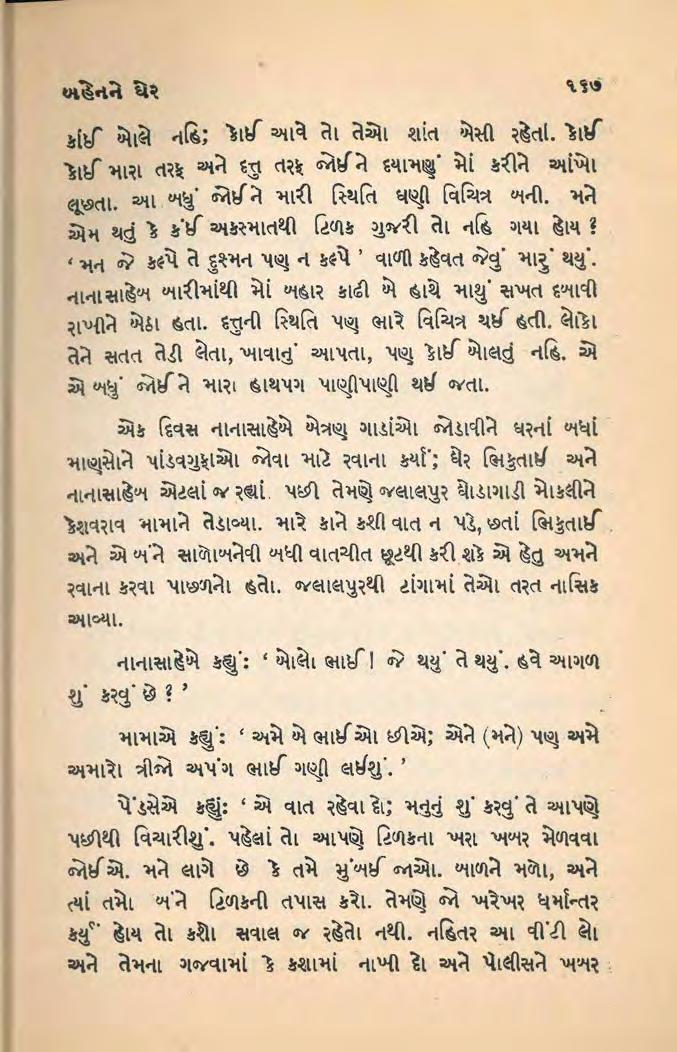 બહેનને ઘેર ૧૬૭
કાંઈ બોલે નહિ; કોઈ આવે તો તેઓ શાંત બેસી રહેતાં. કોઈ
કોઈ મારા તરફ અને દત્તુ તરફ જોઈને દયામણું મોં કરીને આંખો
લૂછતા. આ બધું જોઈને મારી સ્થિતિ ઘણી વિચિત્ર બની. મને
એમ થતું કે કંઈ અકસ્માતથી ટિળક ગુજરી તો નહિ ગયા હોય ?
‘ મન જે કલ્પે તે દુશ્મન પણ ન કલ્પે ’ વાળી કહેવત જેવું મારું થયું.
નાનાસાહેબ બારીમાંથી મોં બહાર કાઢી બે હાથે માથું સખત દબાવી
રાખીને બેઠા હતા. દત્તુની સ્થિતિ પણ ભારે વિચિત્ર થઈ હતી. લોકો
તેને સતત તેડી લેતા, ખાવાનું આપતા, પણ કોઈ બોલતું નહિ. એ
એ બધું જોઈને મારા હાથપગ પાણીપાણી થઈ જતા.
એક દિવસ નાનાસાહેબે બેત્રણ ગાડાંઓ જોડાવીને ઘરનાં બધાં
માણસોને પાંડવગુફાઓ જોવા માટે રવાના કર્યાં; ઘેર ભિકુતાઈ અને
નાનાસાહેબ એટલાં જ રહ્યાં. પછી તેમણે જલાલપુર ઘોડાગાડી મોકલીને
કેશવરાવ મામાને તેડાવ્યા. મારે કાને કશી વાત ન પડે, છતાં ભિકુતાઈ
અને એ બંને સાળાબનેવી બધી વાતચીત છૂટથી કરી શકે એ હેતુ અમને
રવાના કરવા પાછળનો હતો. જલાલપુરથી ટાંગામાં તેઓ તરત નાસિક
આવ્યા.
નાનાસાહેબે કહ્યું: ‘ બોલો ભાઈ ! જે થયું તે થયું. હવે આગળ
શું કરવું છે ? ’
મામાએ કહ્યું: ‘ અમે બે ભાઈઓ છીએ; એને (મને) પણ અમે
અમારો ત્રીજો અપંગ ભાઈ ગણી લઈશું. ’
પેંડસેએ કહ્યું: ‘ એ વાત રહેવા દો; મનુનું શું કરવું તે આપણે
પછીથી વિચારીશું. પહેલાં તો આપણે ટિળકના ખરા ખબર મેળવવા
જોઈએ. મને લાગે છે કે તમે મુંબઈ જાઓ. બાળને મળો, અને
ત્યાં તમો બંને ટિળકની તપાસ કરો. તેમણે જો ખરેખર ધર્માન્તર
કર્યું હોય તો કશો સવાલ જ રહેતો નથી. નહિતર આ વીંટી લો
અને તેમના ગજવામાં કે કશામાં નાખી દો અને પોલીસને ખબર